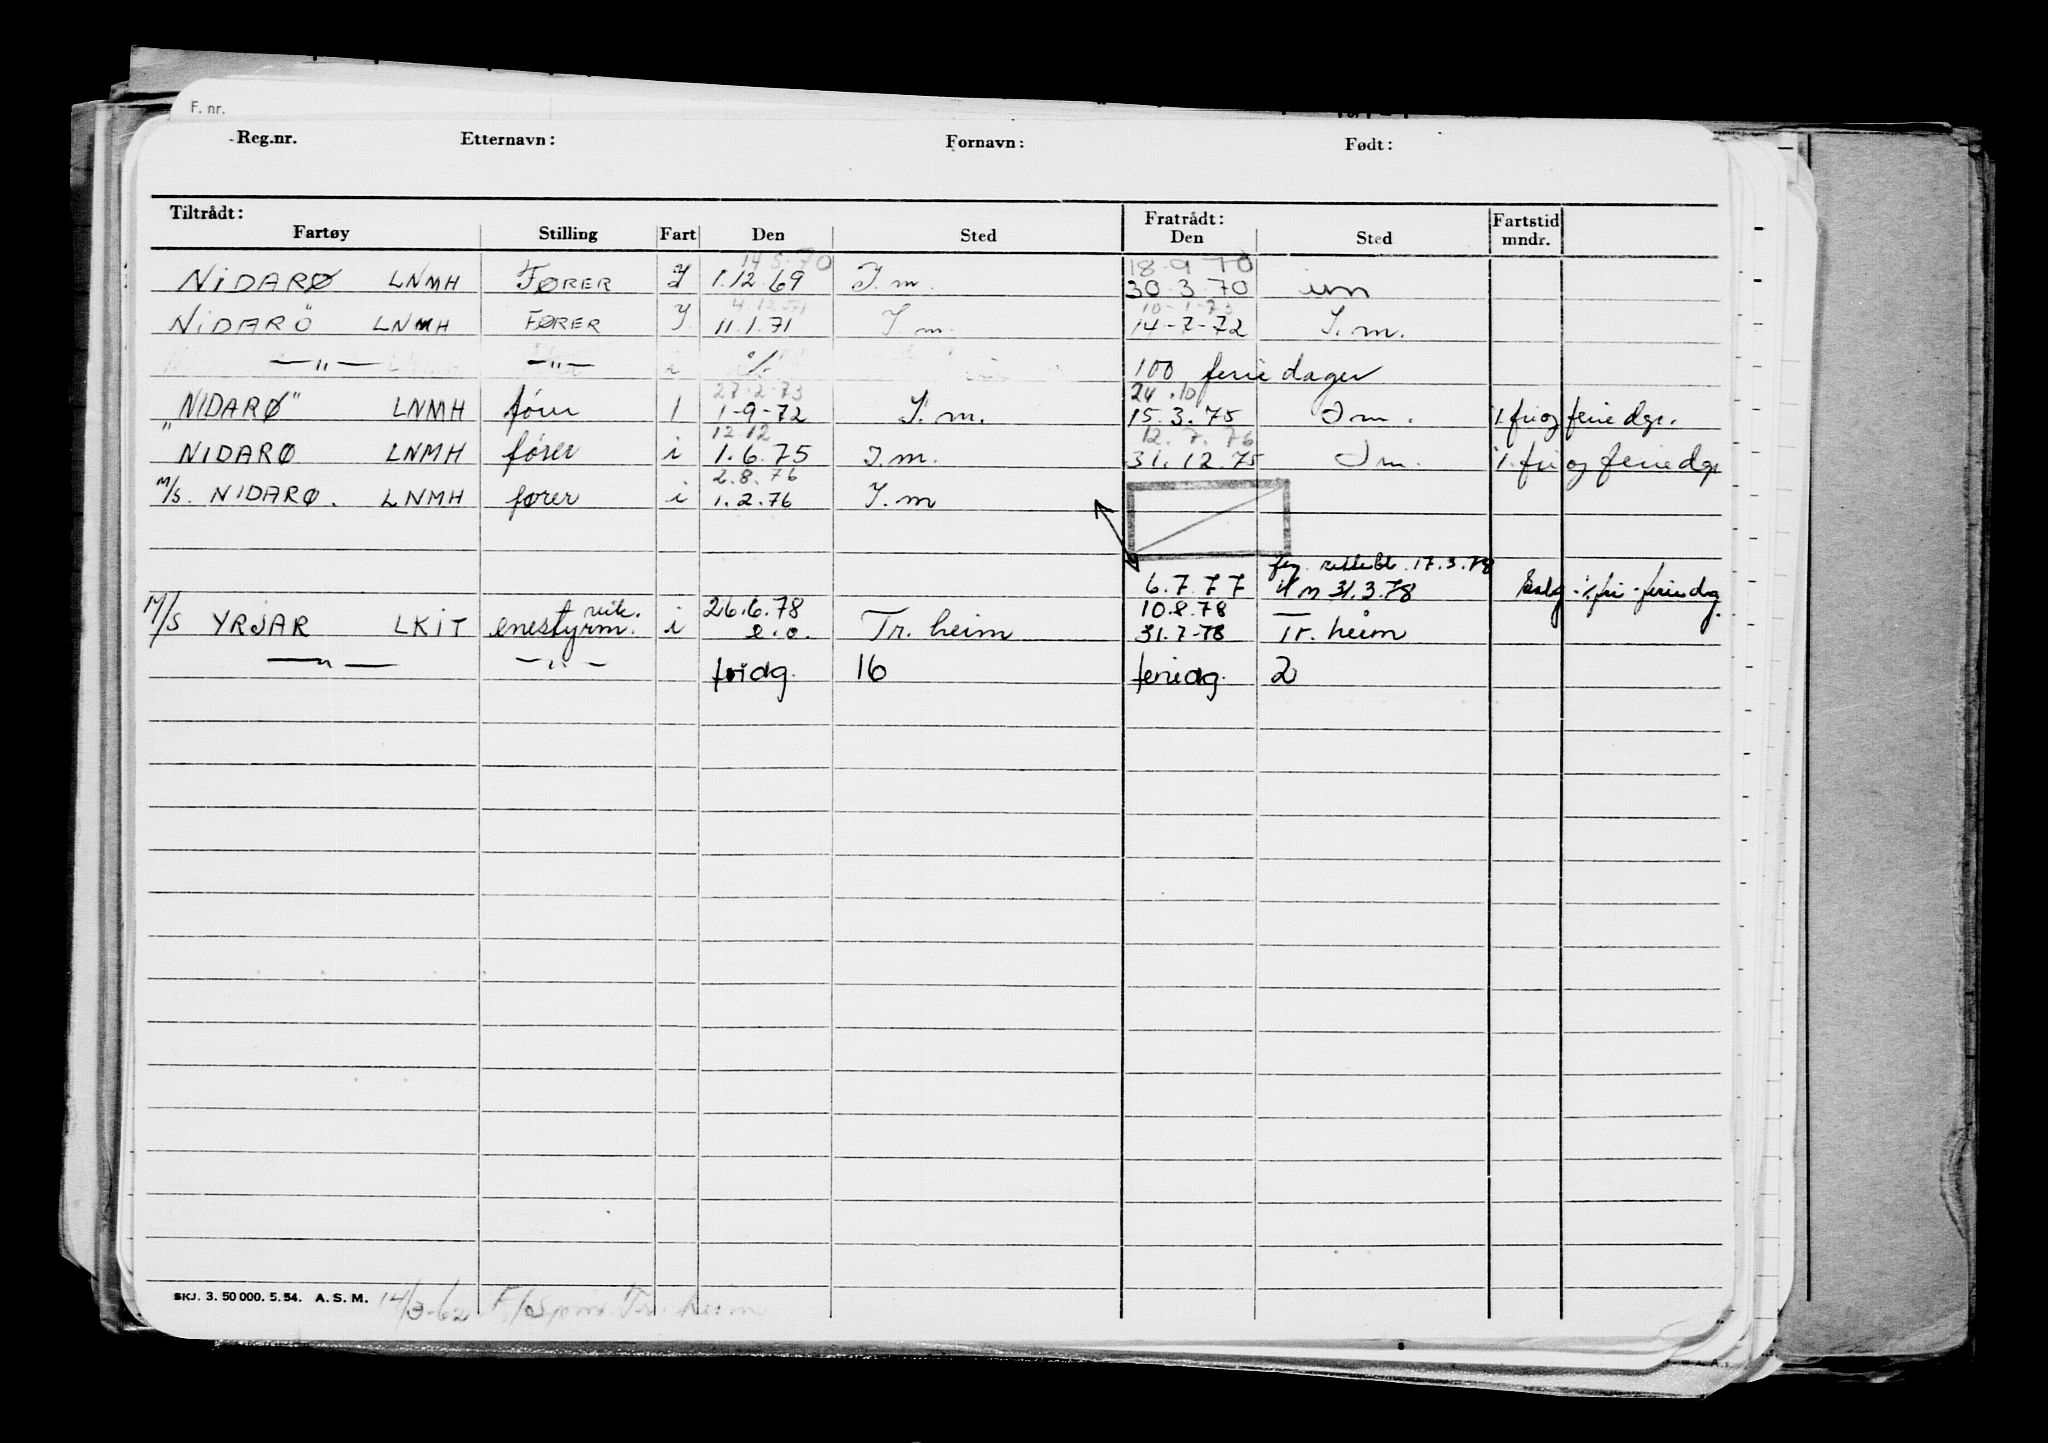 F. nr.
Reg.nr. Etternavn: Fornavn: Født:
Tiltrådt: Fratrådt: Fartstid
Fartøy Stilling Fart Den Sted Den Sted mndr.
14.5.70 18-9 70
NIDARØ LNMH FØRER I 1.12.69 I.m. 30.3.70 im
4.12.71 10-1-73
NIDARÖ LNMH FØRER I 11.1.71 I.m. 14-7-72 I.m.
—"— —"— i 100 feriedager
27.2.73 24.10
"NIDARØ" LNMH fører I 1-9-72 I.m. 15.3.75 Im. %. fri og feriedgr.
12.12 12.7.76
"NIDARØ LNMH fører i 1.6.75 I.m. 31.12.75 Im. %. fri og feriedgr
2.8.76
M/S. NIDARØ. LNMH fører i 1.2.76 I.m
17.3.78
6.7.77 31.3.78 Salg - %. fri - feriedag.
vik. 26.6.78 10.8.78
M/S YRJAR LKIT enestyrm. i e.o. Tr. heim 31.7-78 Tr. heim
—"— —"— fridg. 16 feriedg. 2
SKJ. 3. 50 000. 5. 54. A. S. M. 14/3-62 Tr. heim